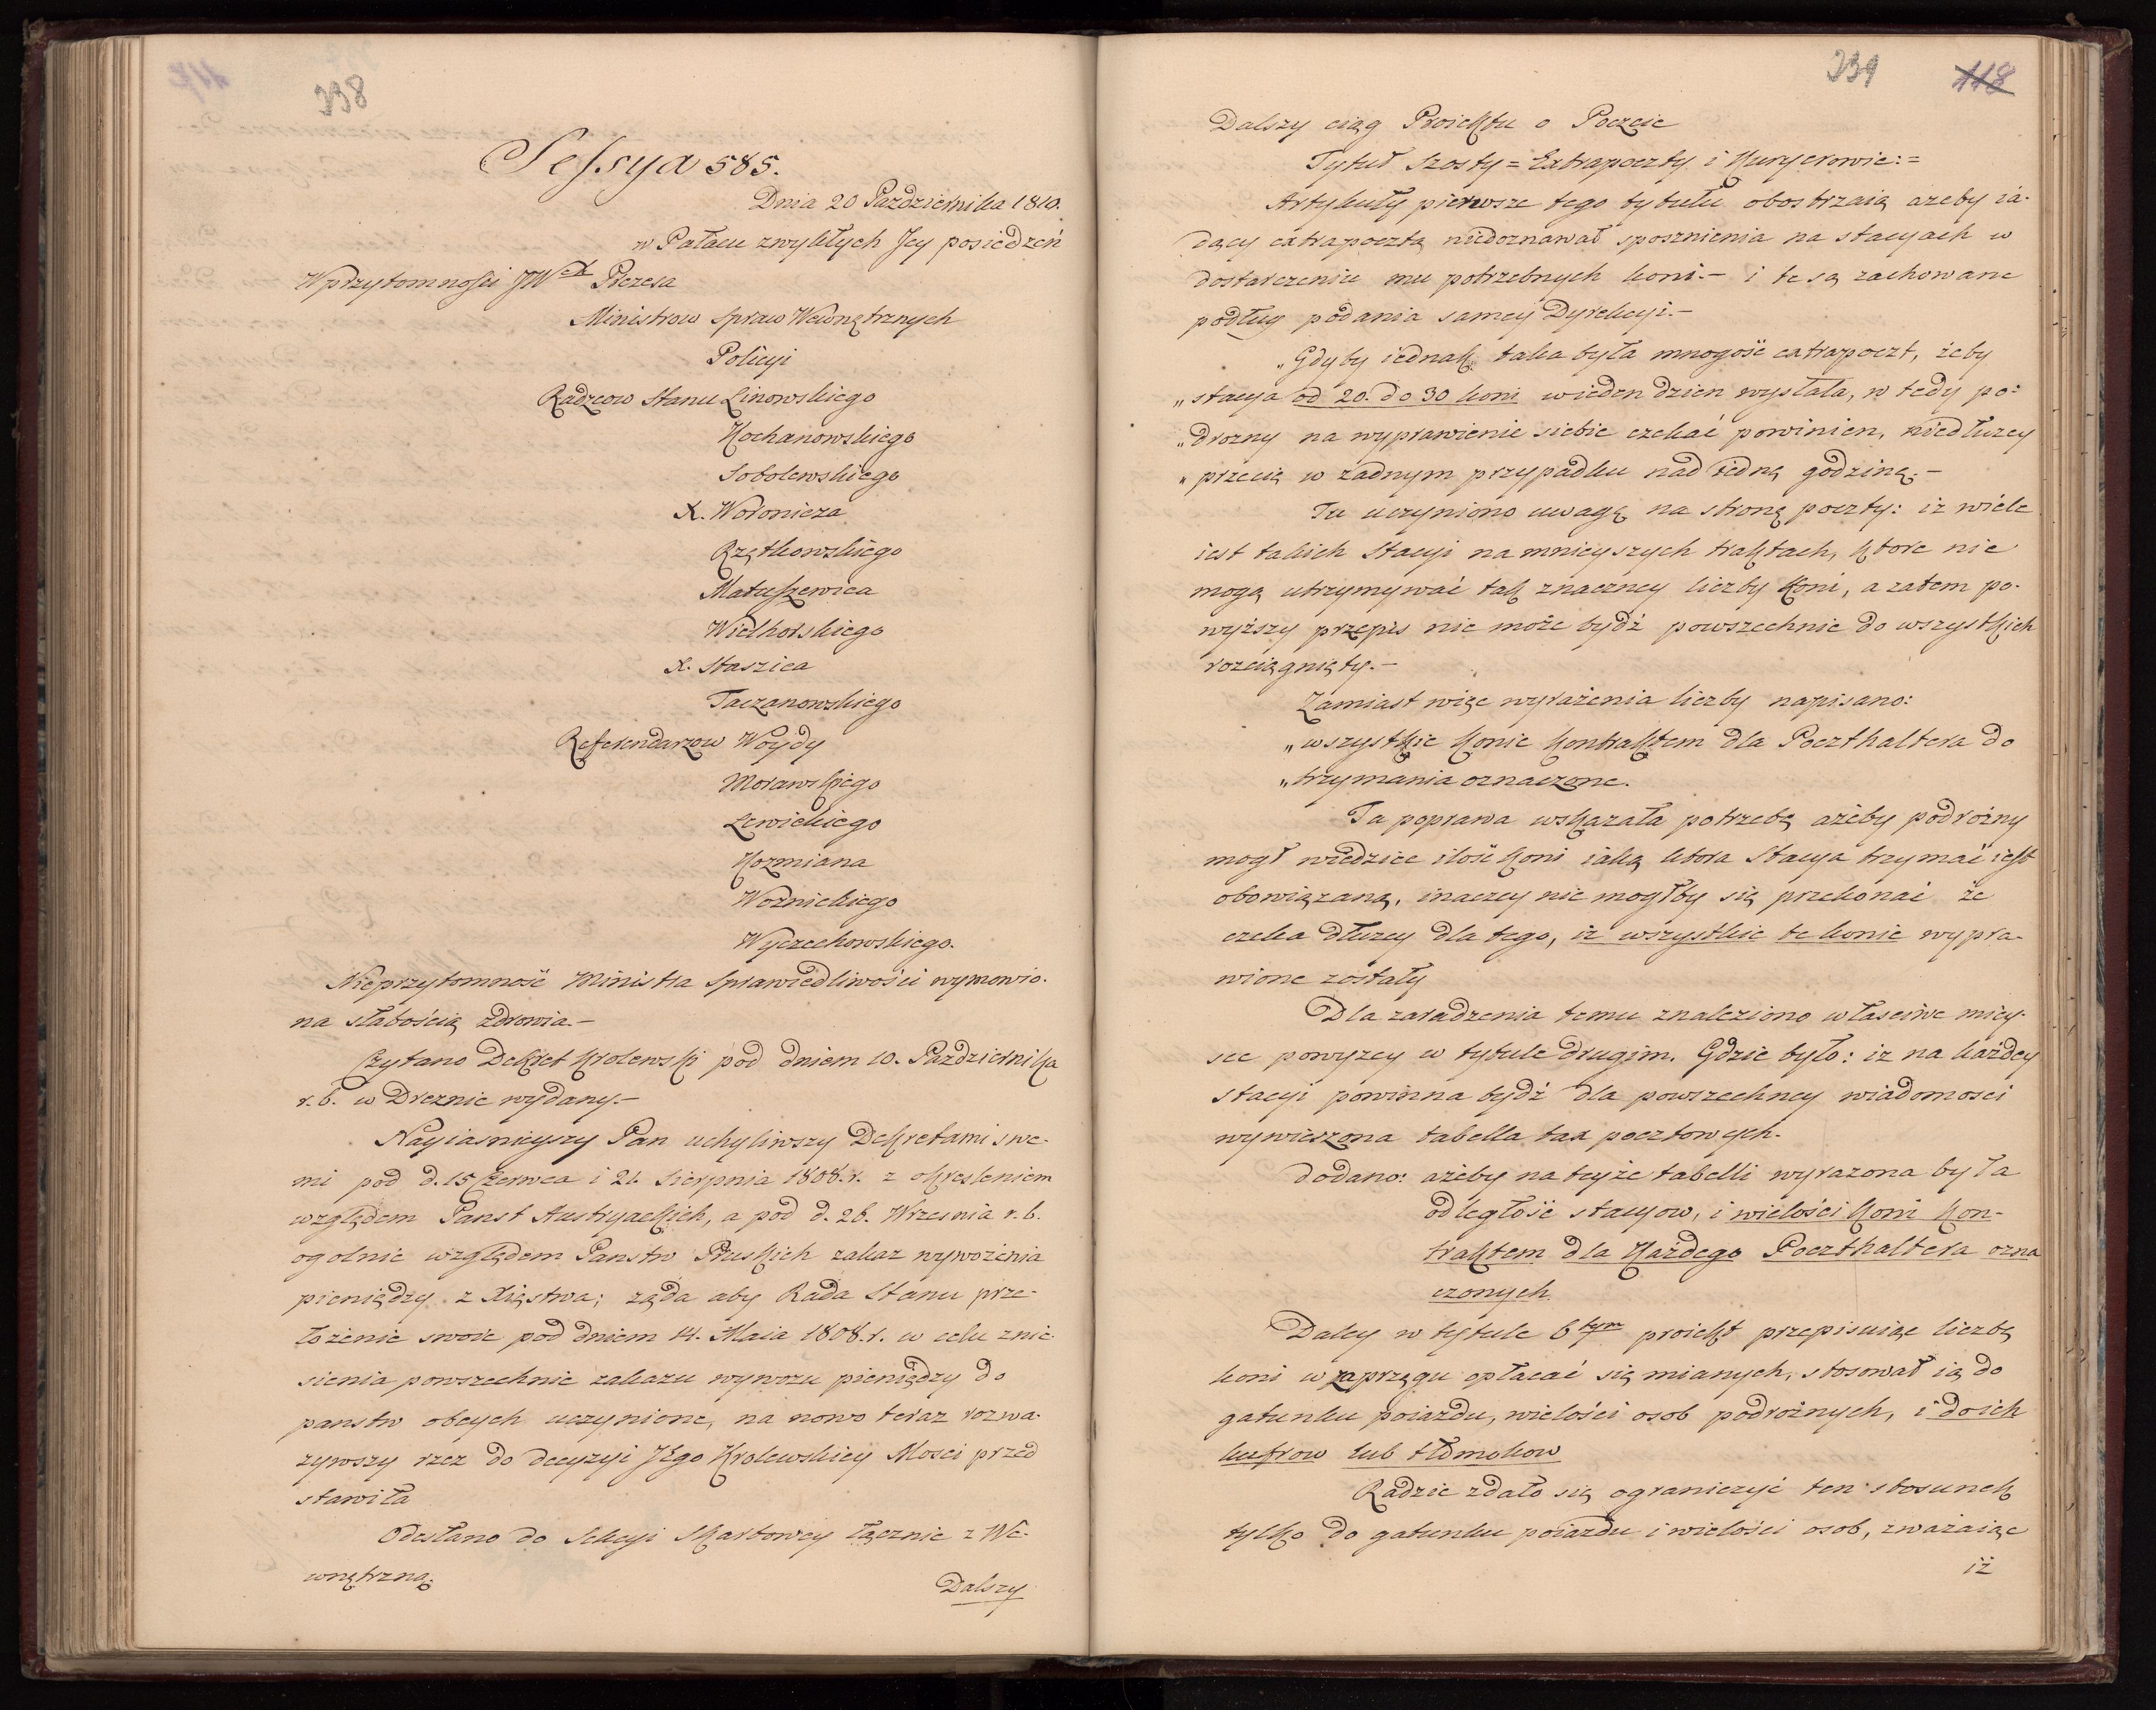 338
Sessya 585.
Dnia 20 Pazdziernika 1810.
w Pałacu zwykłych Jey posiedzeń
W przytomności JW Prezesa
Ministrow Spraw Wewnętrznych
Policyi
Radzcow Stanu Linowskiego
Kochanowskiego
Sobolewskiego
X. Woronicza
Rzętkowskiego
Matuszewica
Wielhorskiego
X. Staszica
Taczanowskiego
Referendarzow Woydy
Morawskiego
Lewickiego
Kozmiana
Woznickiego
Wyczechowskiego.
Nieprzytomność Ministra Sprawiedliwości wymowio-
na słabością zdrowia.—
Czytano Dekret Krolewski pod dniem 10. Pazdziernika
r. b. w Dreznie wydany.—
Nayiasnieyszy Pan uchyliwszy Dekretami swe-
mi pod d. 15 Czerwca i 21. Sierpnia 1808. r. z okresleniem
względem Panst Austryackich, a pod d. 26. Wrzesnia r. b.
ogolnie względem Panstw Pruskich zakaz wywożenia
pieniędzy z Xięstwa; ząda aby Rada Stanu prze-
łożenie swoie pod dniem 14. Maia 1808. r. w celu znie-
sienia powszechnie zakazu wywozu pieniędzy do
panstw obcych uczynione, na nowo teraz rozwa-
zywszy rzecz do decyzyi Jego Krolewskiey Mosci przed
stawiła
Odesłano do Sekcyi Skarbowey łącznie z We-
wnętrzną.
Dalszy
339 118
Dalszy ciąg Proiektu o Poczcie
Tytuł szosty = Extrapoczty i Kuryerowie: =
Artykuły pierwsze tego tytułu obostrzaią azeby ia-
dący extrapocztą niedoznawał spoznienia na stacyach w
dostarczeniu mu potrzebnych koni.— i te są zachowane
podług podania samey Dyrekcyi.—
„Gdyby iednak taka była mnogość extrapoczt, żeby
„stacya od 20. do 30 koni wieden dzien wysłała, w tedy po-
„drozny na wyprawienie siebie czekać powinien, niedłuzey
„przecię w żadnym przypadku nad iedną godzinę.—
Tu uczyniono uwagę na stronę poczty: iz wiele
iest takich Stacyi na mnieyszych traktach, ktore nie
mogą utrzymywać tak znaczney liczby koni, a zatem po-
wyższy przepis nie może bydź powszechnie do wszystkich
rozciągnięty.—
Zamiast więc wyrażenia liczby napisano:
„wszystkie konie kontraktem dla Poczthaltera do
„trzymania oznaczone.
Ta poprawa wskazała potrzebę ażeby podrózny
mogł wiedziec ilość koni iaką ktora Stacya trzymać iest
obowiązaną, inaczey nie mogłby się przekonać że
czeka dłuzey dla tego, iz wszystkie te konie wypra-
wione zostały
Dla zaradzenia temu znaleziono własciwe miey-
sce powyzey w tytule drugim. Gdzie było: iz na każdey
stacyi powinna bydź dla powszechney wiadomosci
wywieszona tabella tax pocztowych.
dodano: ażeby na teyże tabelli wyrazona była
odległość stacyow, i wielości koni kon-
traktem dla każdego Poczthaltera ozna
czonych
Daley w tytule 6tym proiekt przepisuiąc liczbę
koni w zaprzęgu opłacać się mianych, stosował ią do
gatunku poiazdu, wielości osob podrożnych, i do ich
kufrow lub tłomokow
Radzie zdało się ograniczyć ten stosunek
tylko do gatunku poiazdu i wielości osob, zważaiąc
iż